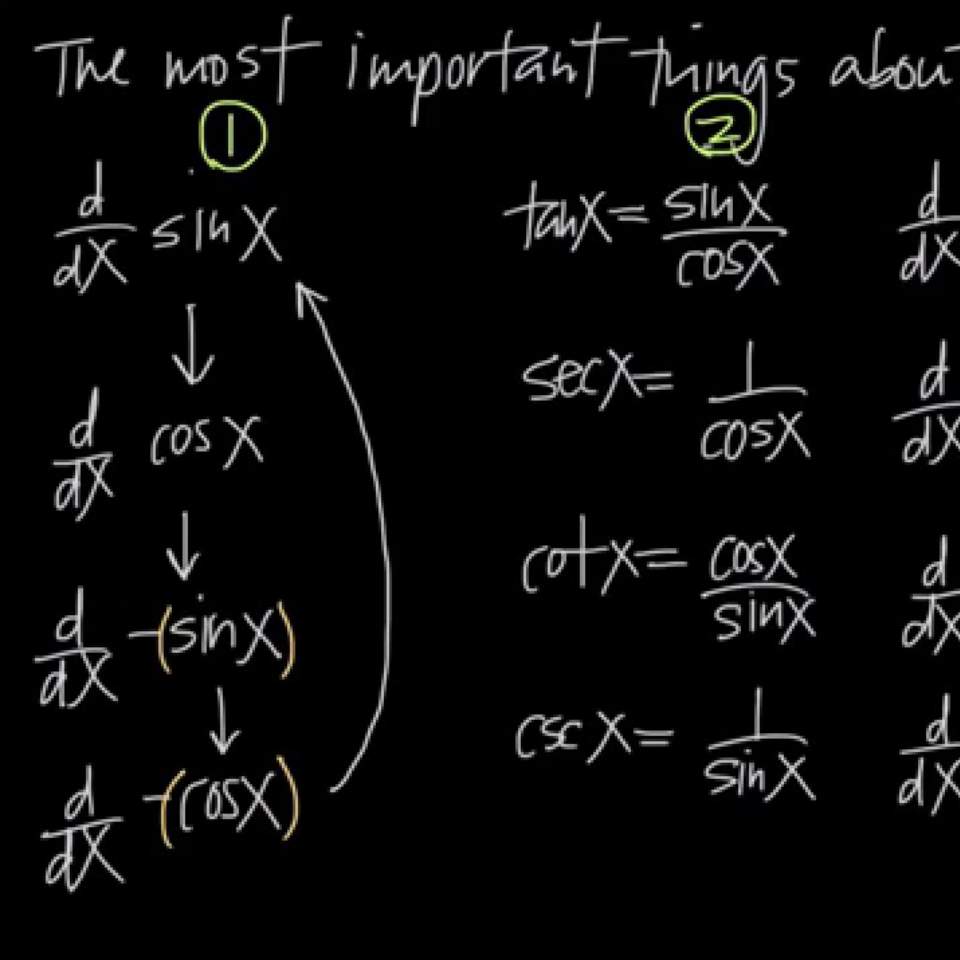 The most important things abou
① ②
d/dx sin x
↓
d/dx cos x
↓
d/dx -(sin x)
↓
d/dx -(cos x)
tan x = sin x / cos x
sec x = 1 / cos x
cot x = cos x / sin x
csc x = 1 / sin x
d/dx
d/dx
d/dx
d/dx